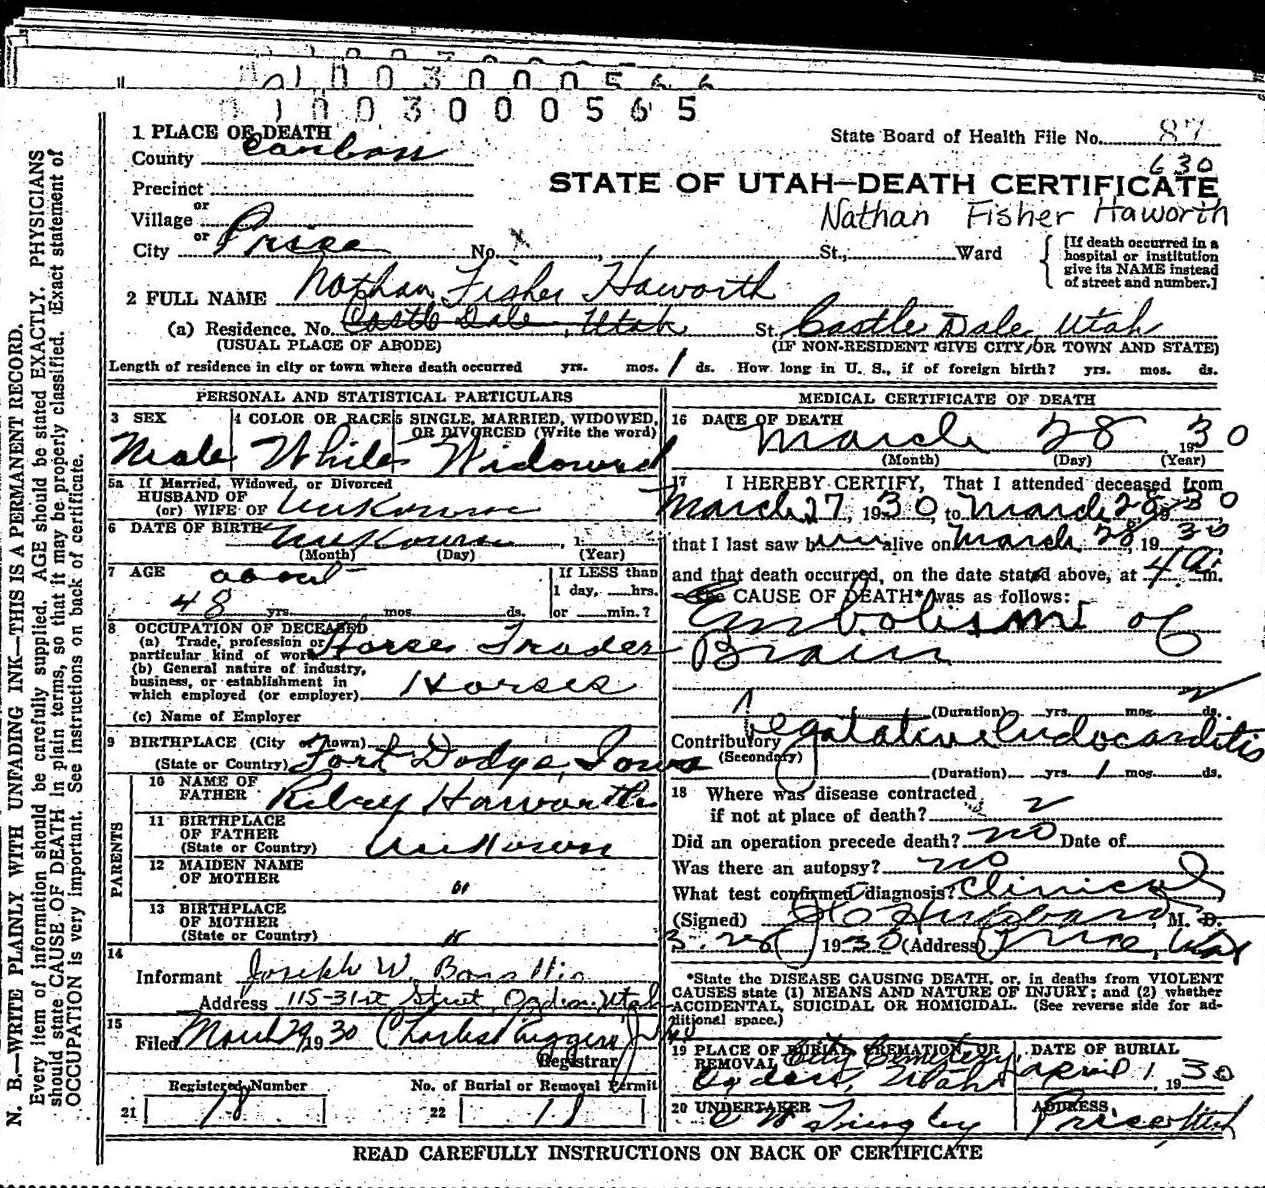 0 1 0 0 3 0 0 0 5 6 6
0 1 0 0 3 0 0 0 5 6 5
1 PLACE OF DEATH
State Board of Health File No. 87
County Carbon
630
STATE OF UTAH—DEATH CERTIFICATE
Precinct
or
Nathan Fisher Haworth
Village
or
City Price No. x St., Ward
[If death occurred in a hospital or institution give its NAME instead of street and number.]
2 FULL NAME Nathan Fisher Haworth
(a) Residence. No. Castle Dale, Utah St. Castle Dale, Utah
(USUAL PLACE OF ABODE) (IF NON-RESIDENT GIVE CITY OR TOWN AND STATE)
Length of residence in city or town where death occurred yrs. mos. 1 ds. How long in U. S., if of foreign birth? yrs. mos. ds.
PERSONAL AND STATISTICAL PARTICULARS
3 SEX
Male
4 COLOR OR RACE
White
5 SINGLE, MARRIED, WIDOWED,
OR DIVORCED (Write the word)
Widowed
5a If Married, Widowed, or Divorced
HUSBAND OF
(or) WIFE OF Unknown
6 DATE OF BIRTH Unknown , 1
(Month) (Day) (Year)
7 AGE about
48 yrs. mos. ds.
If LESS than
1 day, hrs.
or min.?
8 OCCUPATION OF DECEASED
(a) Trade, profession or
particular kind of work Horse Trader
(b) General nature of industry,
business, or establishment in
which employed (or employer) Horses
(c) Name of Employer
9 BIRTHPLACE (City or town)
(State or Country) Fort Dodge, Iowa
PARENTS
10 NAME OF
FATHER Haworth
11 BIRTHPLACE
OF FATHER
(State or Country) Unknown
12 MAIDEN NAME
OF MOTHER "
13 BIRTHPLACE
OF MOTHER
(State or Country) "
14
Informant Joseph W.
Address 115-31st Street, Ogden, Utah
15
Filed March 29 1930 Charles
Registrar
Registered Number
21 78
No. of Burial or Removal Permit
22 11
MEDICAL CERTIFICATE OF DEATH
16 DATE OF DEATH
March 28 1930
(Month) (Day) (Year)
17 I HEREBY CERTIFY, That I attended deceased from
March 27, 1930, to March 28, 1930
that I last saw him alive on March 28, 1930
and that death occurred, on the date stated above, at 4 a. m.
The CAUSE OF DEATH* was as follows:
Embolism of
Brain
(Duration) yrs. mos. 2 ds.
Contributory Vegatative Endocarditis
(Secondary)
(Duration) yrs. 1 mos. ds.
18 Where was disease contracted
if not at place of death? ?
Did an operation precede death? no Date of
Was there an autopsy? no
What test confirmed diagnosis? Clinical
(Signed) M. D.
3-28 1930 (Address) Price, Utah
*State the DISEASE CAUSING DEATH, or, in deaths from VIOLENT
CAUSES state (1) MEANS AND NATURE OF INJURY; and (2) whether
ACCIDENTAL, SUICIDAL OR HOMICIDAL. (See reverse side for ad-
ditional space.)
19 PLACE OF BURIAL, CREMATION, OR
REMOVAL City Cemetery,
Ogden, Utah
DATE OF BURIAL
April 1, 1930
20 UNDERTAKER
ADDRESS
Price, Utah
READ CAREFULLY INSTRUCTIONS ON BACK OF CERTIFICATE
N. B.—WRITE PLAINLY WITH UNFADING INK—THIS IS A PERMANENT RECORD.
Every item of information should be carefully supplied. AGE should be stated EXACTLY. PHYSICIANS
should state CAUSE OF DEATH in plain terms, so that it may be properly classified. Exact statement of
OCCUPATION is very important. See instructions on back of certificate.